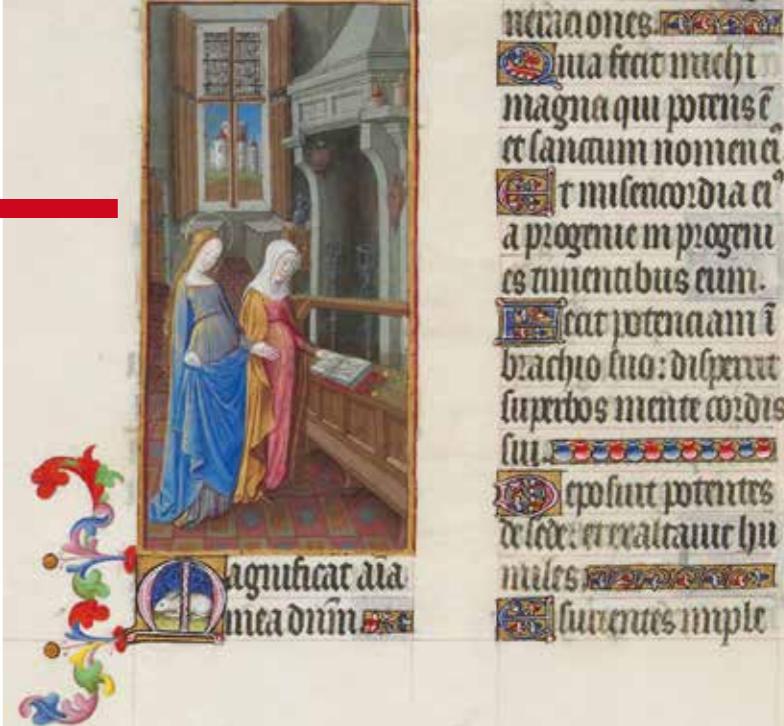 Magnificat aīa
mea dnm̄
neraciones.
Quia fecit michi
magna qui potens ē
et sanctum nomen ei
Et misericordia ei⁹
a progenie in progeni
es timentibus eum.
Fecit potenciam ī
brachio suo: dispersit
superbos mente cordis
sui.
Deposuit potentes
de sede: et exaltauit hu
miles.
Esurientes imple